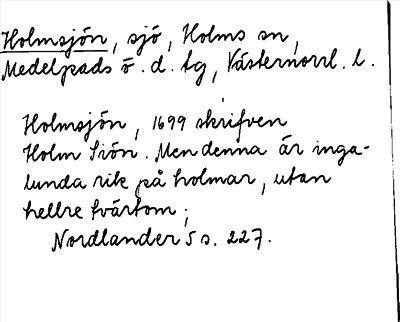 Holmsjön, sjö, Holms sn,
Medelpads ö. d. tg, Västernorrl. l.
Holmsjön, 1699 skrifven
Holm Siön. Men denna är inga-
lunda rik på holmar, utan
hellre tvärtom;
Nordlander 5 s. 227.